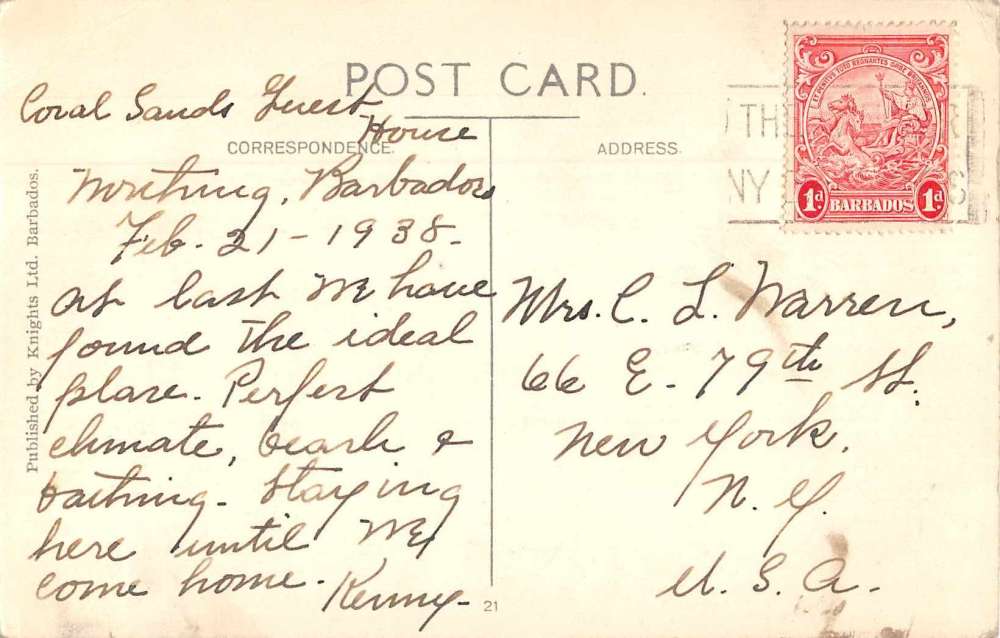 POST CARD.
CORRESPONDENCE.
ADDRESS.
Coral Sands Guest
House
Worthing, Barbados
Feb. 21 - 1938.
At last we have
found the ideal
place. Perfect
climate, beach &
bathing. Staying
here until we
come home.
Kenny.
Mrs. C. L. Warren,
66 E. 79th St.
New York.
N. Y.
U. S. A.
Published by Knights Ltd. Barbados.
21
ET PENTITUS TOTO REGNANTES ORBE BRITANNOS
1d. BARBADOS 1d.
THE
NY